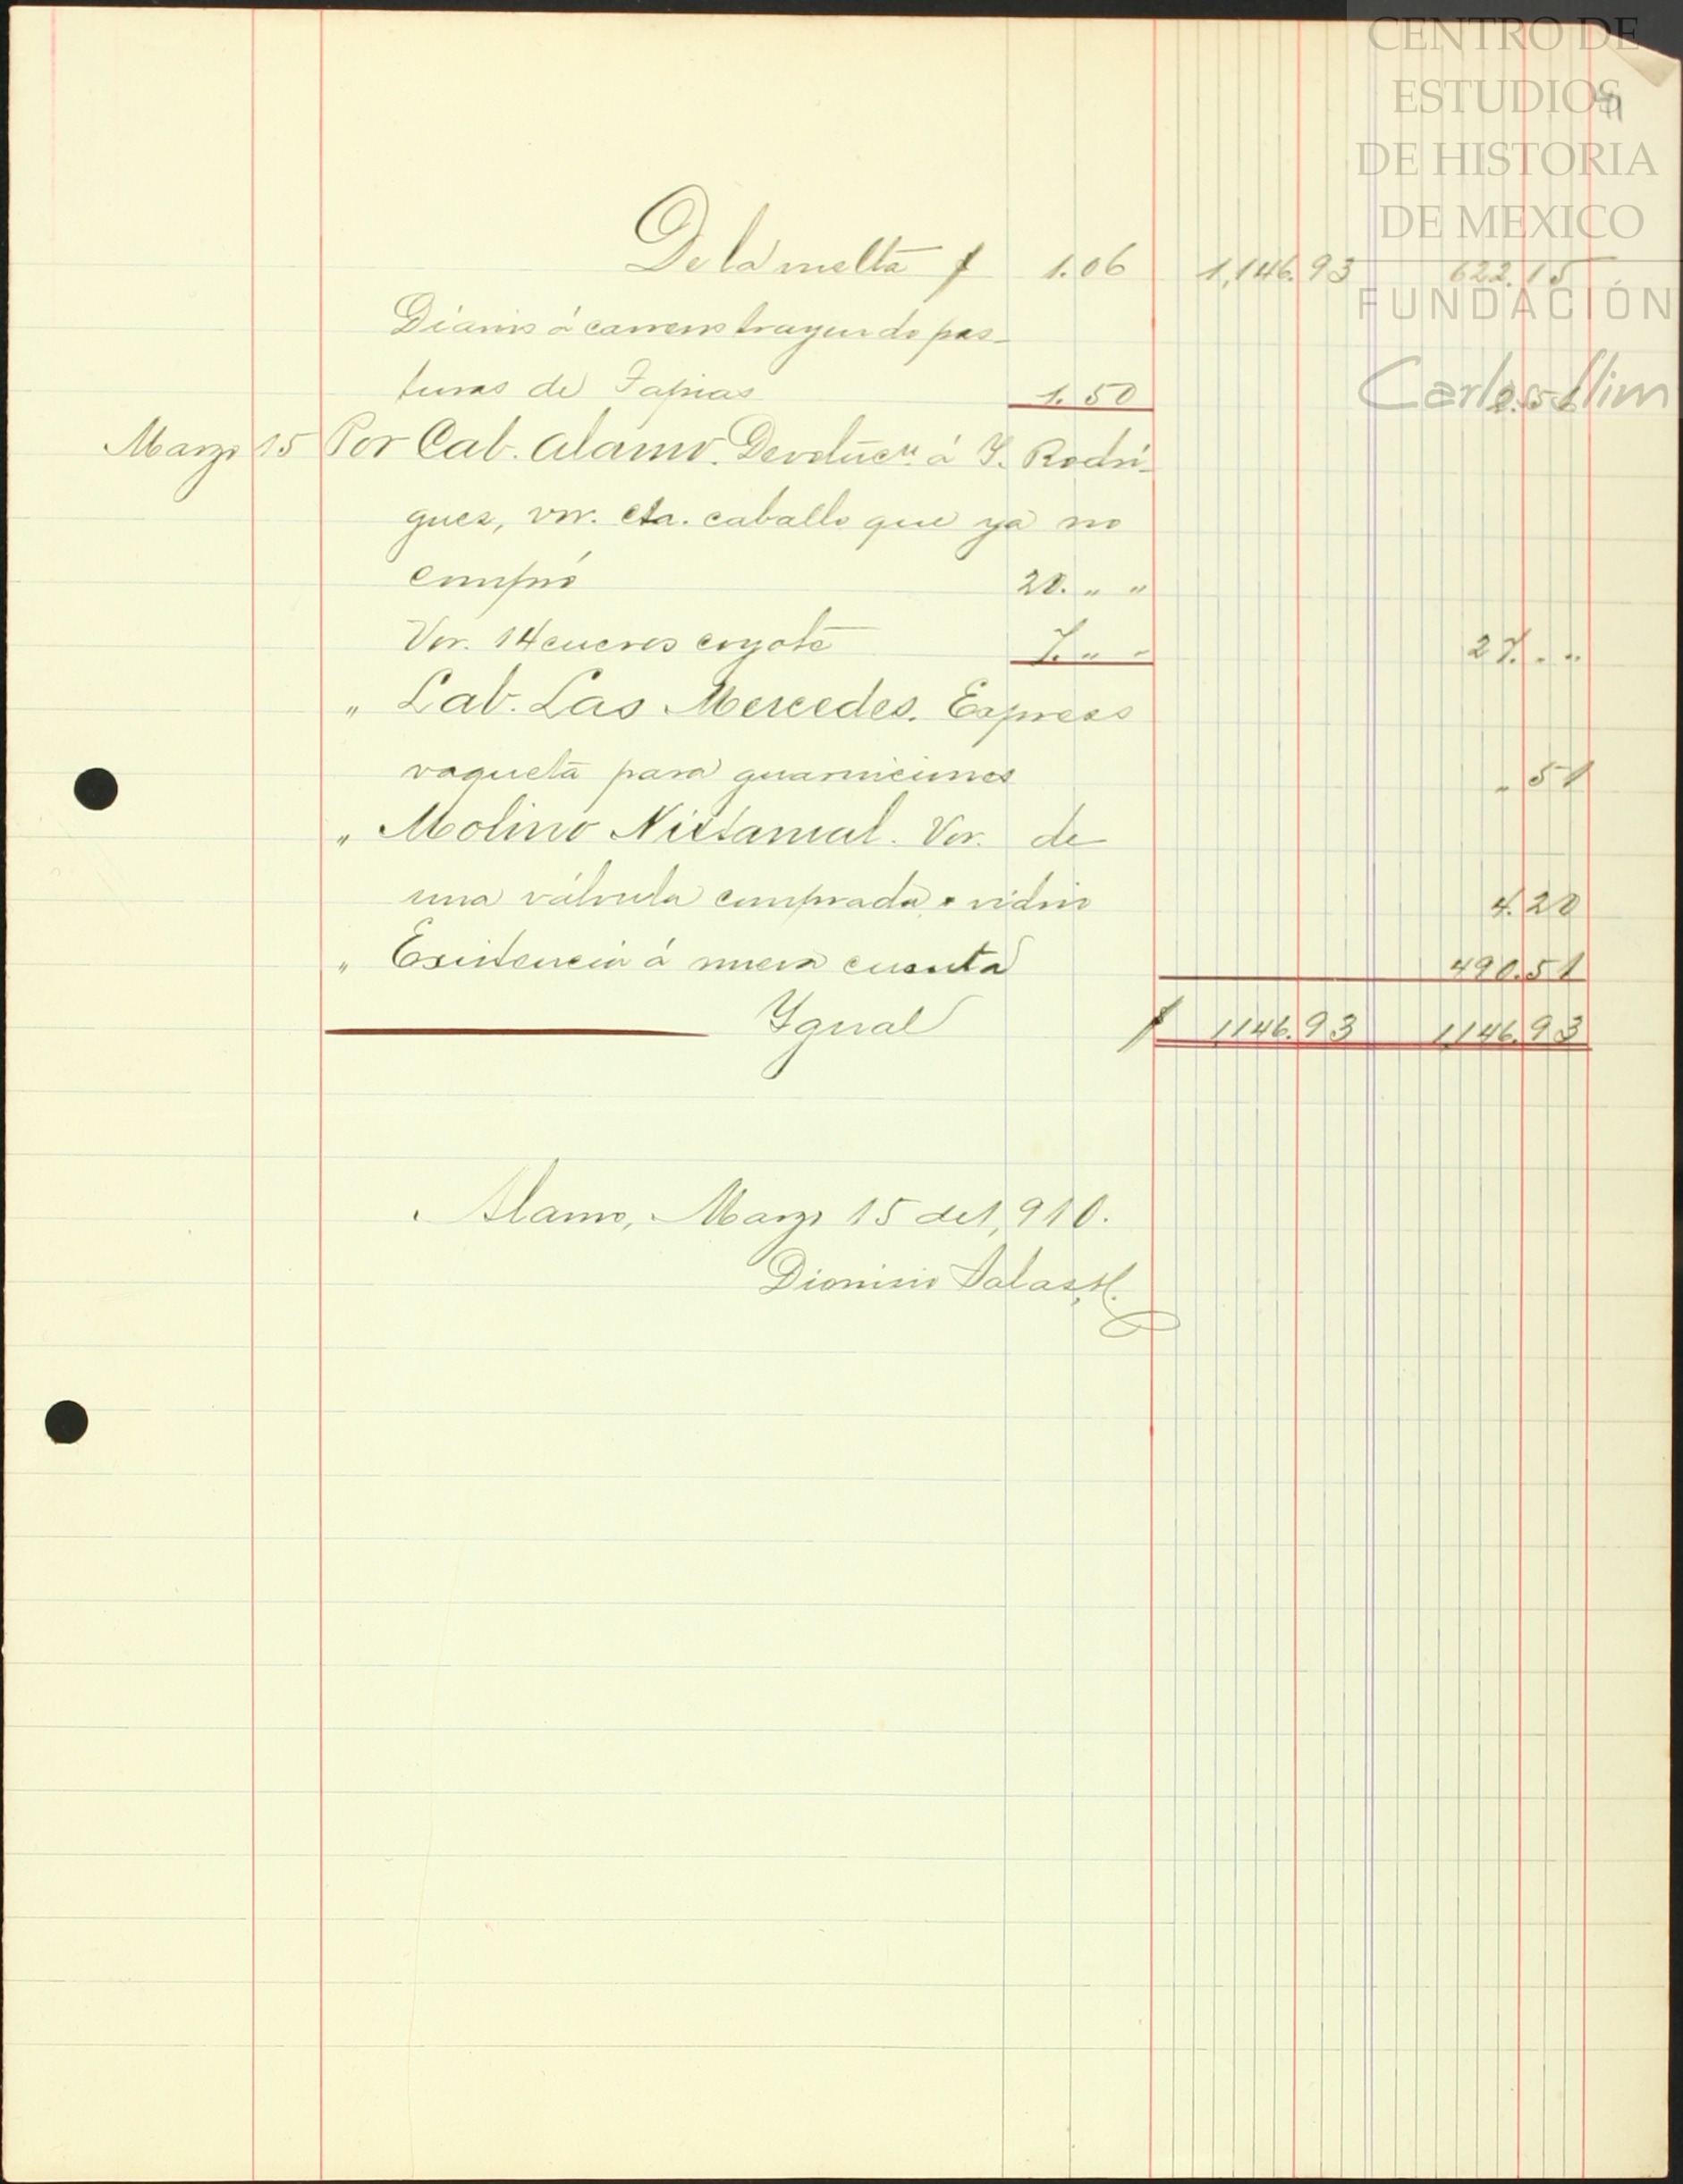 CENTRO DE
ESTUDIOS
DE HISTORIA
DE MEXICO
FUNDACIÓN
Carlos Slim
De la vuelta $ 1.06 1,146.93 622.15
Diario á carrero trayendo pas-
turas de Tapias 1.50 2.56
Marzo 15 Por Cab. Alamo. Devolucn. á Y. Rodrí-
guez, vor. cta. caballo que ya no
compró 20. " "
Vor. 14 cueros coyote 7. " " 27. " "
" Lab. Las Mercedes. Express
vaqueta para guarniciones " 51
" Molino Nixtamal. Vor. de
una válvula comprada, vidrio 4.20
" Existencia á nueva cuenta 490.51
Ygual $ 1146.93 1,146.93
Alamo, Marzo 15 de 1,910.
Dionisio Salas H.